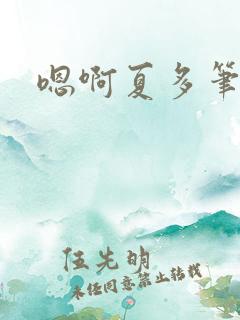 嗯啊夏多筆
伍先明
未经同意禁止转载